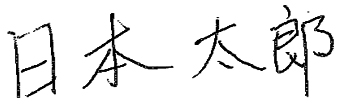 日本太郎